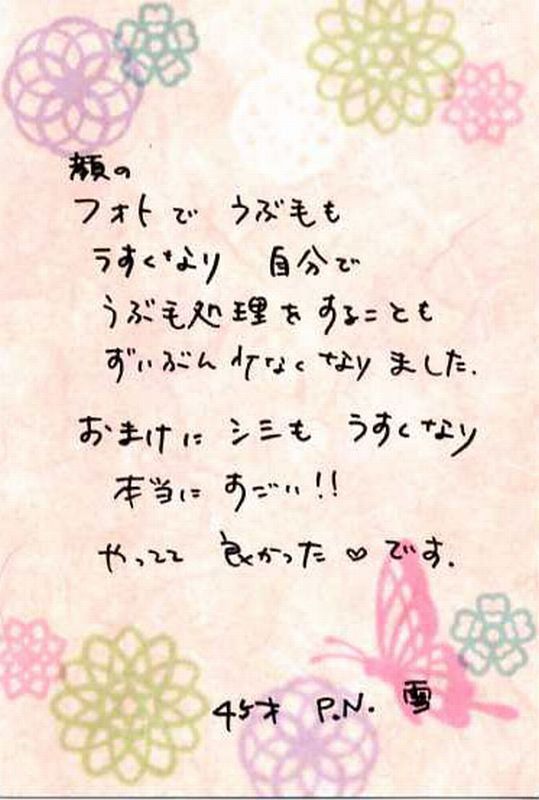 顔の
フォトで うぶ毛も
うすくなり 自分で
うぶ毛処理をすることも
ずいぶん少なくなりました.
おまけに シミも うすくなり
本当に すごい!!
やってて 良かった♡です.
45才 P.N. 雪